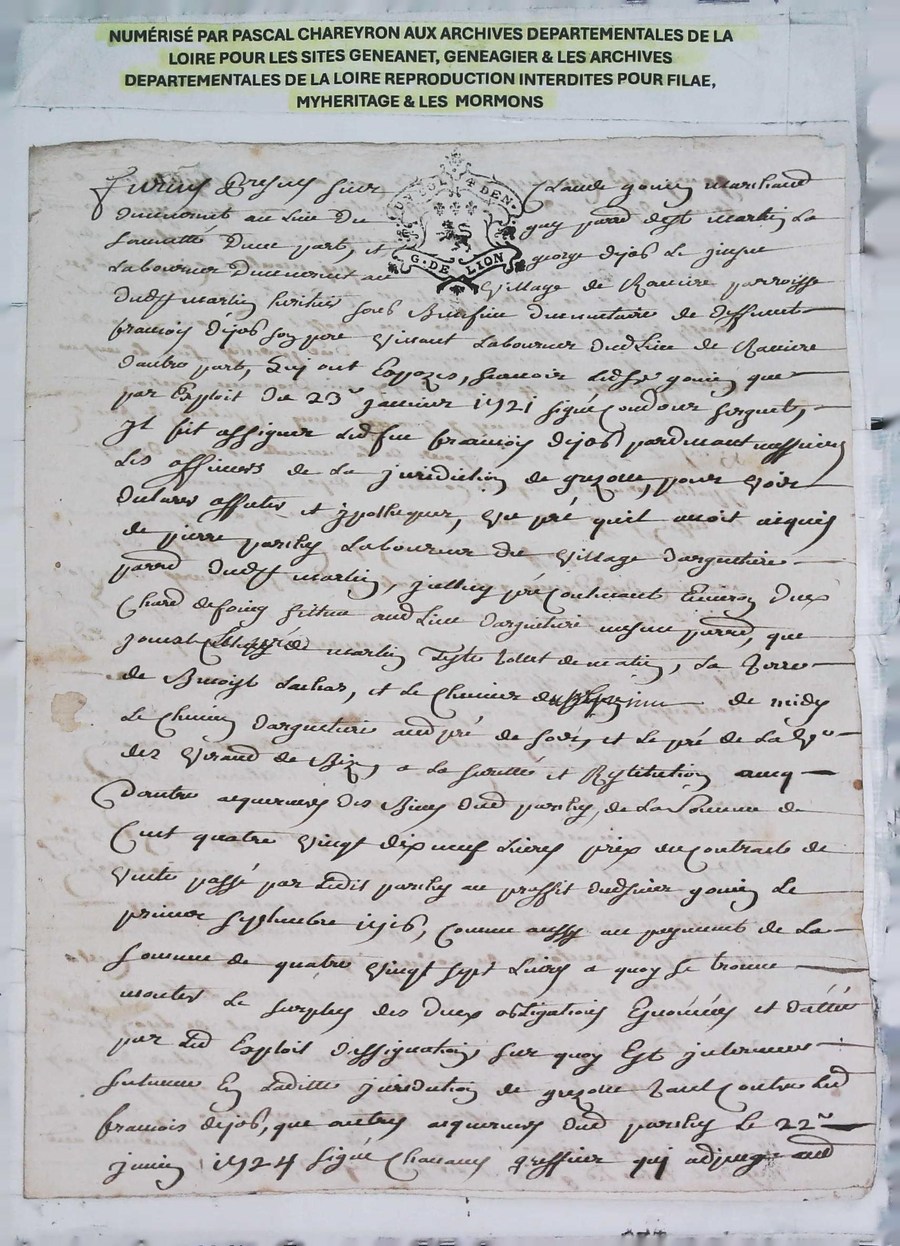 NUMÉRISÉ PAR PASCAL CHAREYRON AUX ARCHIVES DEPARTEMENTALES DE LA
LOIRE POUR LES SITES GENEANET, GENEAGIER & LES ARCHIVES
DEPARTEMENTALES DE LA LOIRE REPRODUCTION INTERDITES POUR FILAE,
MYHERITAGE & LES MORMONS
furent presens sieur Claude gonin marchand
demeurant au lieu du guy parr. de st martin la
sauveté dune part, et george dejob le jeune
G. DE LION
laboureur demeurant au village de Raviere parroisse
dud st martin heritier sous Benefice dinventaire de deffunt
francois dejob son pere vivant laboureur dud lieu de Raviere
dautre part, qui ont Exposes, scavoir led sr gonin que
par Exploit du 23e janvier 1721 signé sergent,
Il fit assigner led feu francois dejob pardevant messieurs
les officiers de la jurisdiction de grezolle, pour voir
declarer affecter et ypothequer, un pré quil avoit acquis
de pierre laboureur du village dargentiere
parr. dud st martin, led pré contenant Environ deux
Chard de foing scittue aud lieu dargentiere mesme parr., que
jouxte le pré de martin de matin, la terre
de Benoist et le Chemin de midy
le Chemin dargentiere aud pré de soir, et le pré de la ve
des de Bize, a la sureté et Restitution avecq
Dautres acquereurs des Biens dud de la Somme de
Cent quatre vingt dix neuf Livres prix du Contract de
vente passé par ledit au proffit dud sieur gonin le
premier septembre 1716, Comme aussy au payement de la
somme de quatre vingt sept Livres a quoy se trouve
monter le surplus des deux obligations Enoncées et dattée
par led Exploit dassignation, sur quoy Est intervenue
sentence En laditte jurisdiction de grezolle tant Contre led
francois dejob, que autres acquereurs dud le 22e
1724 signé greffier qui adjuge aud